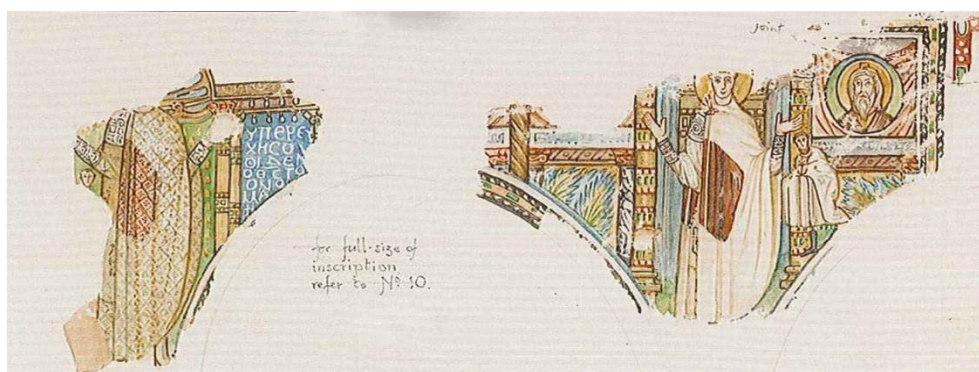 Joint
ΥΠΕΡΕΥ
ΧΗCΟ
ΟΙΔΕΝ
ΟΘCΤΟ
ΟΝΟ
ΜΑ
for full-size of
inscription
refer to Nº 10.